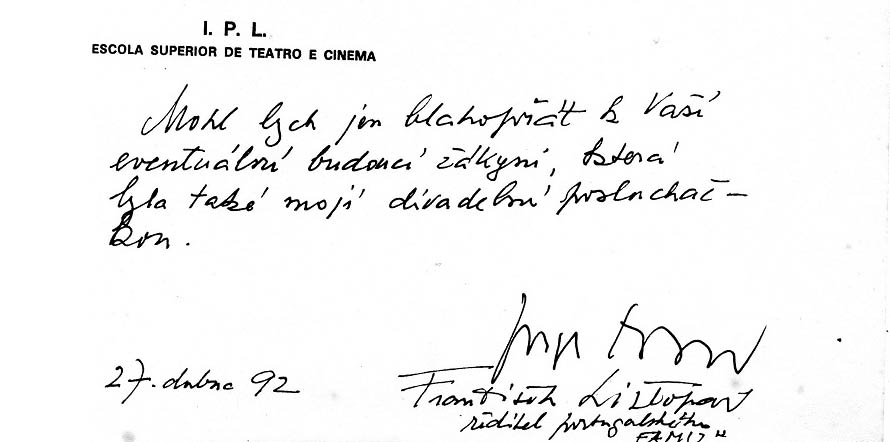 I. P. L.
ESCOLA SUPERIOR DE TEATRO E CINEMA
Mohl bych jen blahopřát k Vaší
eventuální budoucí žákyni, která
byla také mojí divadelní posluchač-
kou.
27. dubna 92
František Listopad
ředitel portugalského
FAMU"